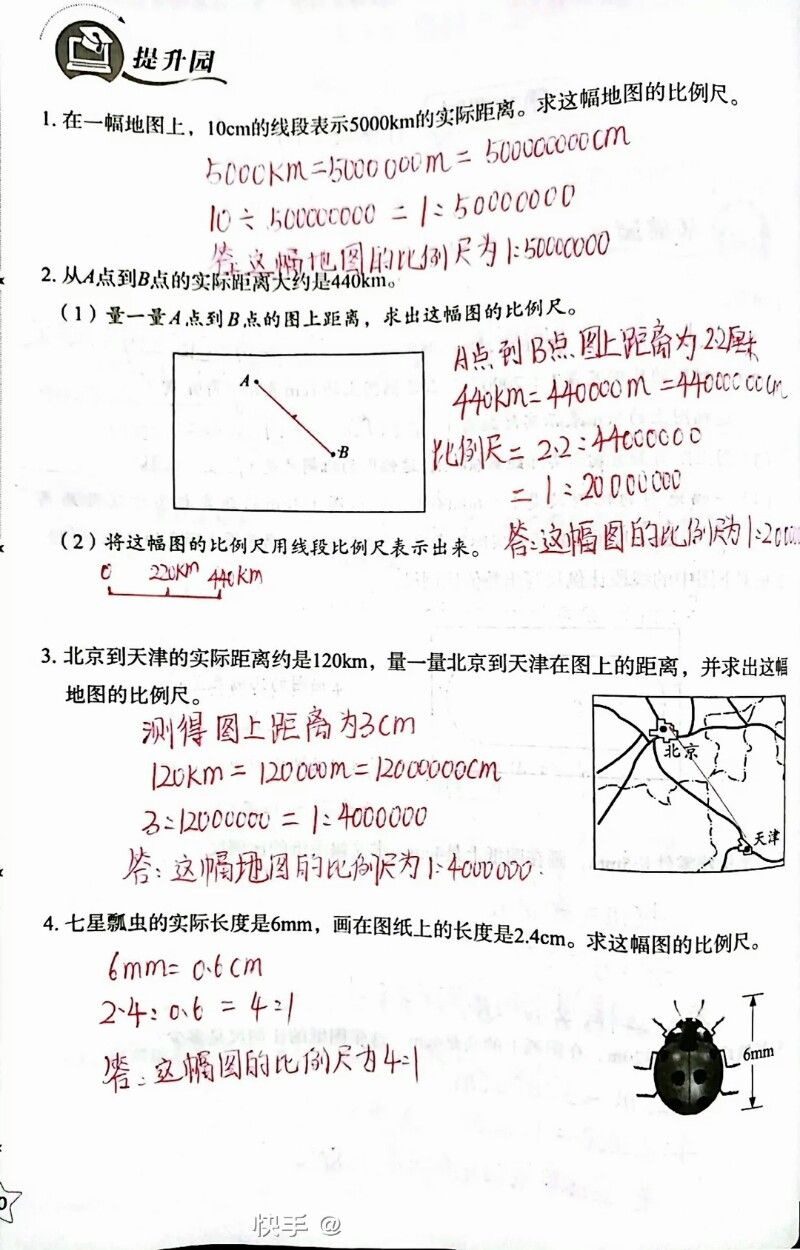 提升园
1. 在一幅地图上，10cm的线段表示5000km的实际距离。求这幅地图的比例尺。
5000Km=5000000m=500000000cm
10÷500000000=1:50000000
答:这幅地图的比例尺为1:50000000
2. 从A点到B点的实际距离大约是440km。
（1）量一量A点到B点的图上距离，求出这幅图的比例尺。
A点到B点图上距离为2.2厘米
440km=440000m=44000000cm
比例尺=2.2:44000000
=1:20000000
答:这幅图的比例尺为1:20000
A
B
（2）将这幅图的比例尺用线段比例尺表示出来。
0 220Km 440Km
3. 北京到天津的实际距离约是120km，量一量北京到天津在图上的距离，并求出这幅
地图的比例尺。
测得图上距离为3cm
120Km=120000m=12000000cm
3:12000000=1:4000000
答:这幅地图的比例尺为1:4000000.
北京
天津
4. 七星瓢虫的实际长度是6mm，画在图纸上的长度是2.4cm。求这幅图的比例尺。
6mm=0.6cm
2.4:0.6=4:1
答:这幅图的比例尺为4:1
6mm
0
快手 @